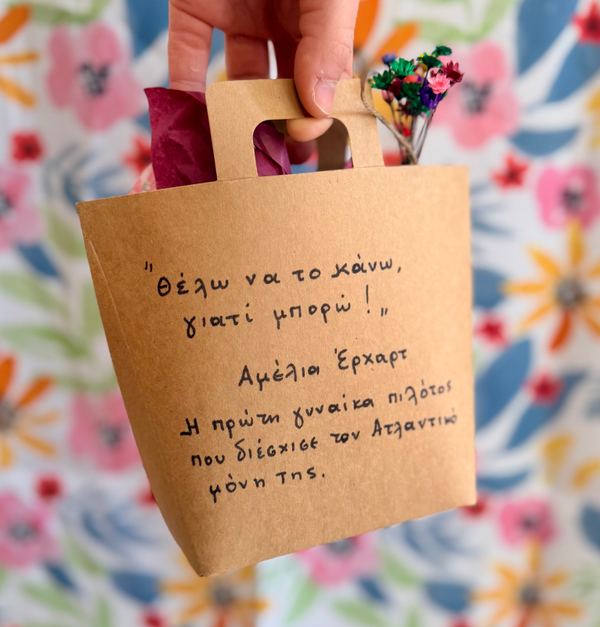 "Θέλω να το κάνω,
γιατί μπορώ!„
Αμέλια Έρχαρτ
Η πρώτη γυναίκα πιλότος
που διέσχισε τον Ατλαντικό
μόνη της.